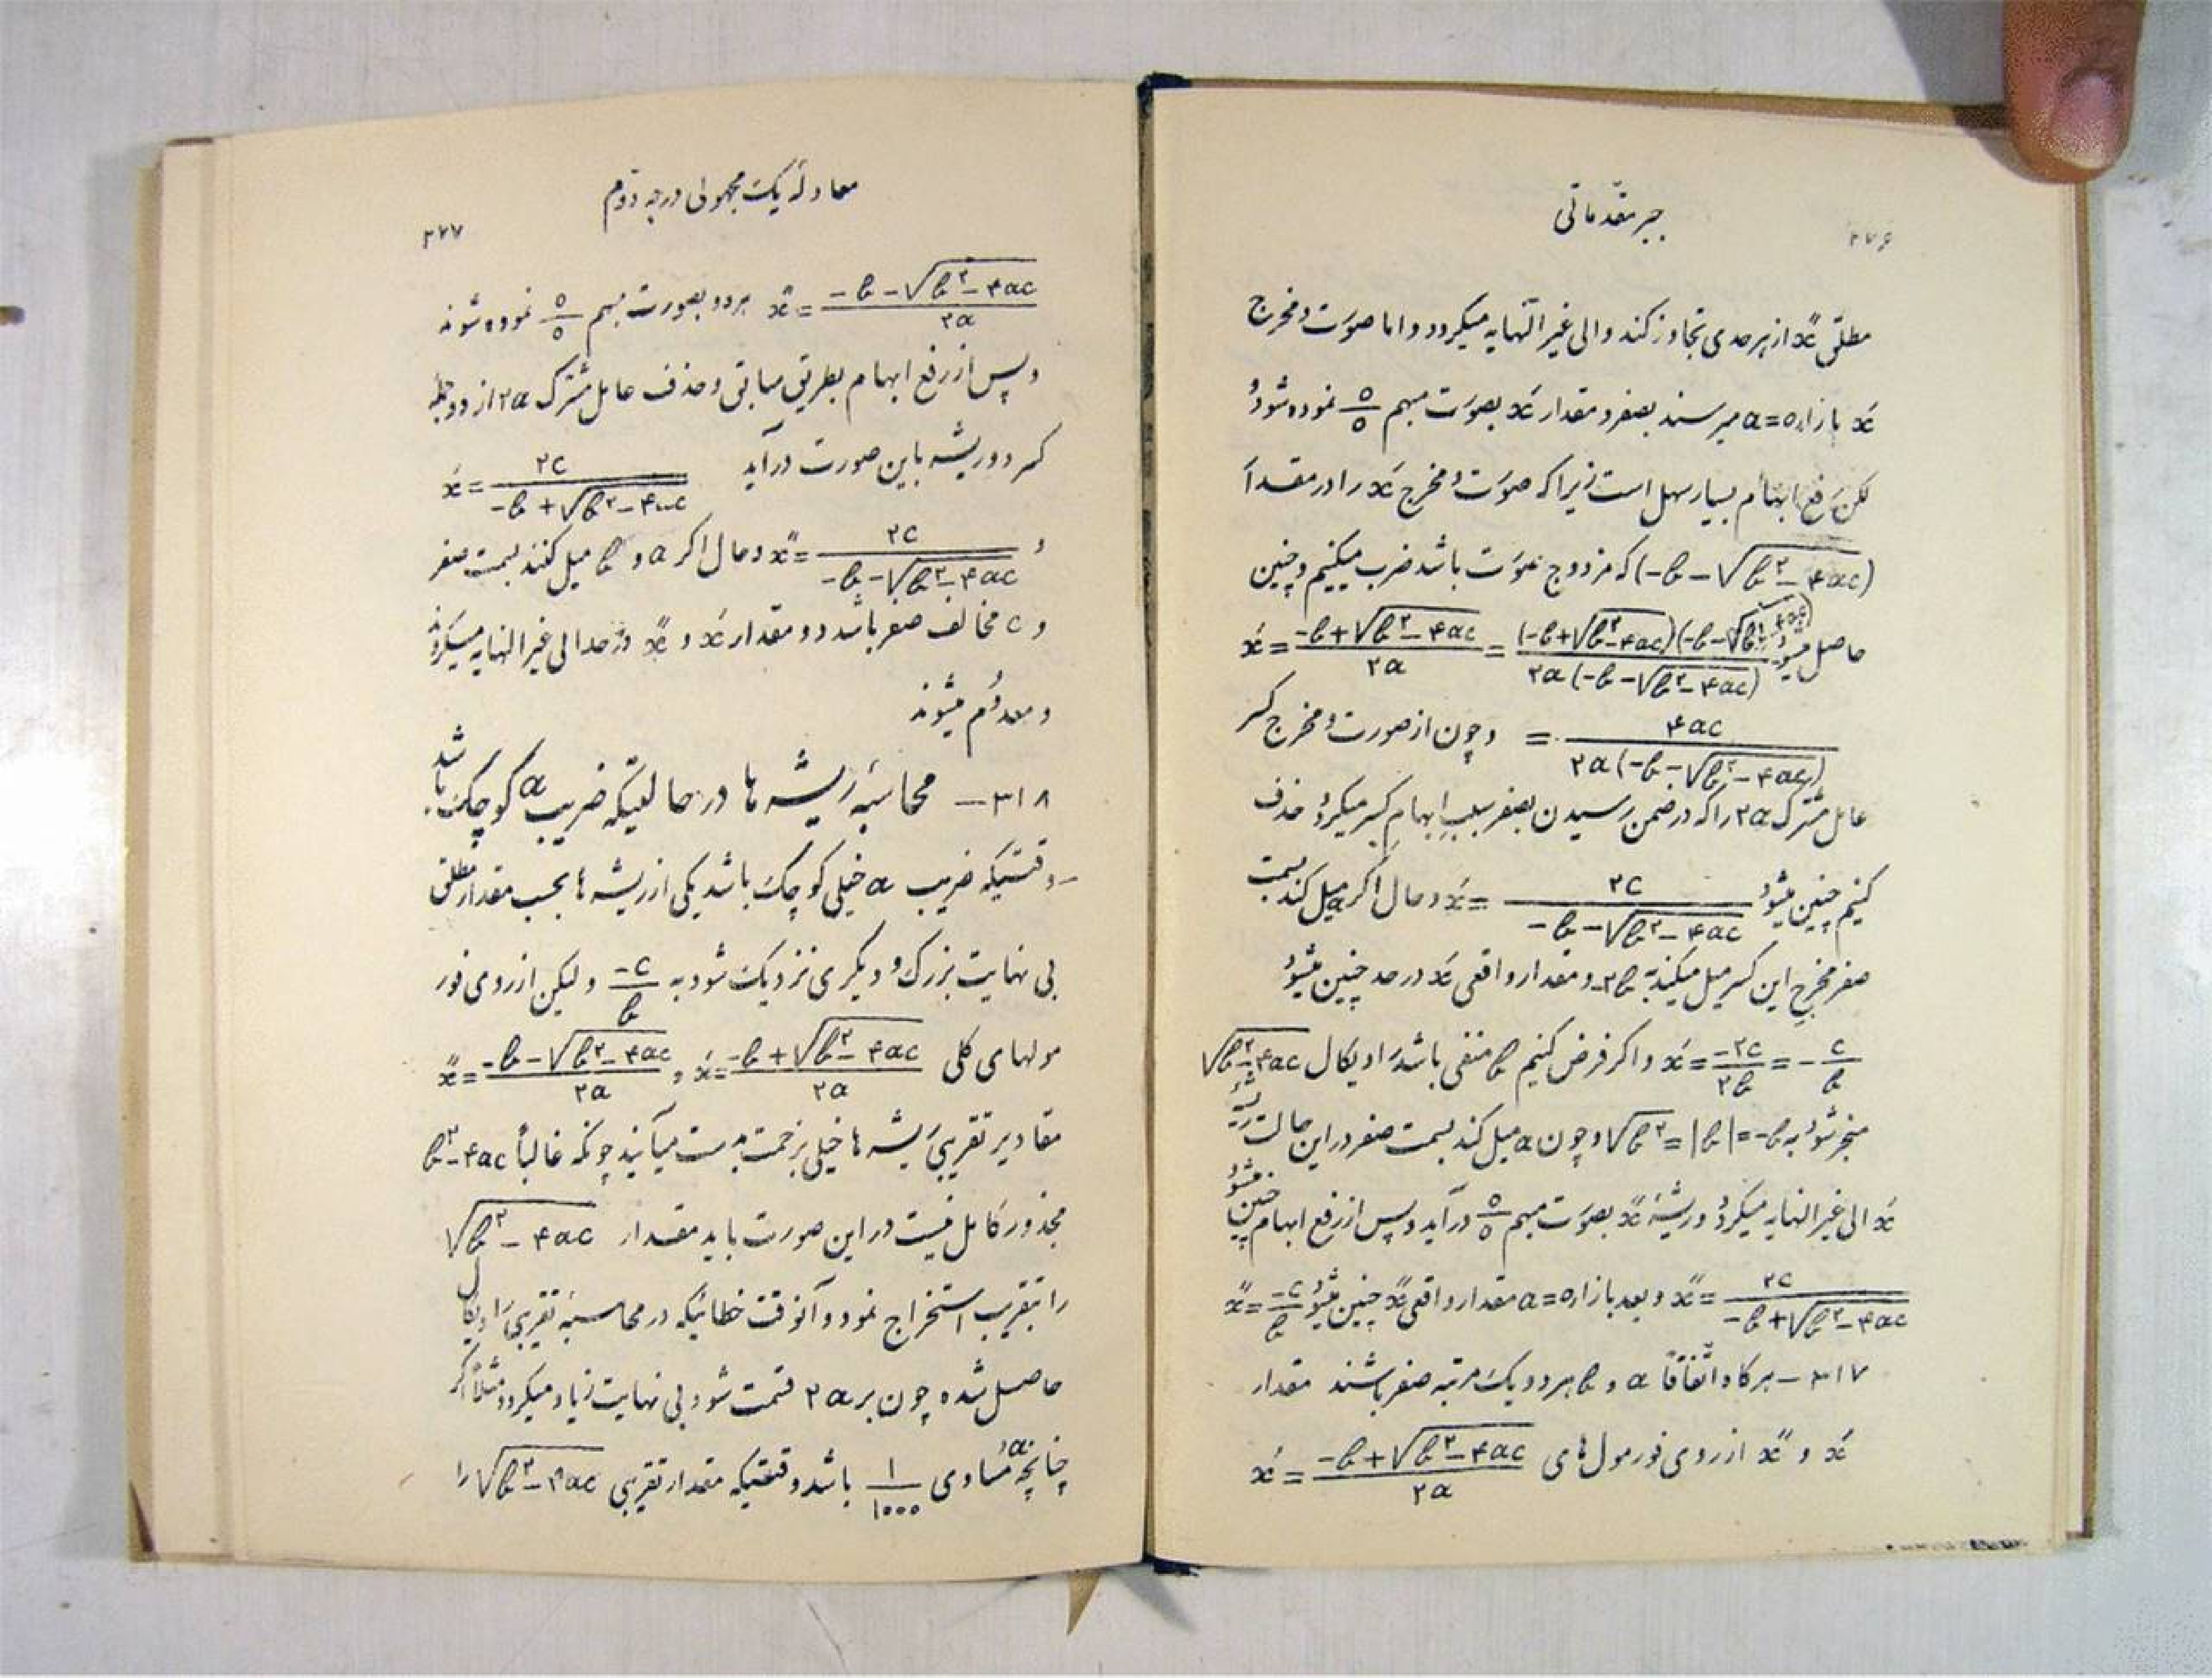 ۲۷۶
جبر مقدماتی
مطلق x″ از هر حدی تجاوز کند والی غیر النهایه میگردد و اما صورت و مخرج
x′ بازاء a=0 میرسند بصفر و مقدار x′ بصورت مبهم 0/0 نموده شود
لکن رفع ابهام بسیار سهل است زیرا که صورت و مخرج x′ را در مقدار
(-b-√(b²-۴ac)) که مزدوج صورت باشد ضرب میکنیم و چنین
حاصل میشود x′ = (-b+√(b²-۴ac))/۲a = (-b+√(b²-۴ac))(-b-√(b²-۴ac))/۲a(-b-√(b²-۴ac))
= ۴ac/۲a(-b-√(b²-۴ac)) و چون از صورت و مخرج کسر
عامل مشترک ۲a را که در ضمن رسیدن بصفر سبب ابهام کسر میگردد حذف
کنیم چنین میشود x′ = ۲c/(-b-√(b²-۴ac)) و حال اگر a میل کند بسمت
صفر مخرج این کسر میل میکند به -۲b و مقدار واقعی x′ در حد چنین میشود
x′ = -۲c/۲b = -c/b و اگر فرض کنیم b منفی باشد رادیکال √(b²-۴ac)
منجر شود به -b = |b| = √b² و چون a میل کند بسمت صفر در این حالت ریشهٔ
x′ الی غیر النهایه میگردد و ریشهٔ x″ بصورت مبهم 0/0 درآید و پس از رفع ابهام چنین میشود
x″ = ۲c/(-b+√(b²-۴ac)) و بعد بازاء a=0 مقدار واقعی x″ چنین میشود x″ = -c/b
۳۱۷ – هرگاه اتفاقاً a و b هر دو یک مرتبه صفر باشند مقدار
x′ و x″ از روی فورمول های x′ = (-b+√(b²-۴ac))/۲a
معادلهٔ یک مجهولی درجه دوم
۲۷۷
x″ = (-b-√(b²-۴ac))/۲a هر دو بصورت مبهم 0/0 نموده شوند
و پس از رفع ابهام بطریق سابق و حذف عامل مشترک ۲a از دو جملهٔ
کسر دو ریشه باین صورت درآید x′ = ۲c/(-b+√(b²-۴ac))
و x″ = ۲c/(-b-√(b²-۴ac)) و حال اگر a و b میل کنند بسمت صفر
و c مخالف صفر باشد دو مقدار x′ و x″ در حد الی غیر النهایه میگردند
و معدوم میشوند
۳۱۸ – محاسبهٔ ریشه ها در حالتیکه ضریب a کوچک باشد
– وقتیکه ضریب a خیلی کوچک باشد یکی از ریشه ها بحسب مقدار مطلق
بی نهایت بزرگ و دیگری نزدیک شود به -c/b ولیکن از روی فور
مولهای کلی x′ = (-b+√(b²-۴ac))/۲a و x″ = (-b-√(b²-۴ac))/۲a
مقادیر تقریبی ریشه ها خیلی بزحمت بدست میآیند چونکه غالباً b²-۴ac
مجذور کامل نیست در این صورت باید مقدار √(b²-۴ac)
را بتقریب استخراج نمود و آنوقت خطائیکه در محاسبهٔ تقریبی رادیکال
حاصل شده چون بر ۲a قسمت شود بی نهایت زیاد میگردد مثلاً اگر
چنانچه a مساوی ۱/۱۰۰۰ باشد وقتیکه مقدار تقریبی √(b²-۴ac) را